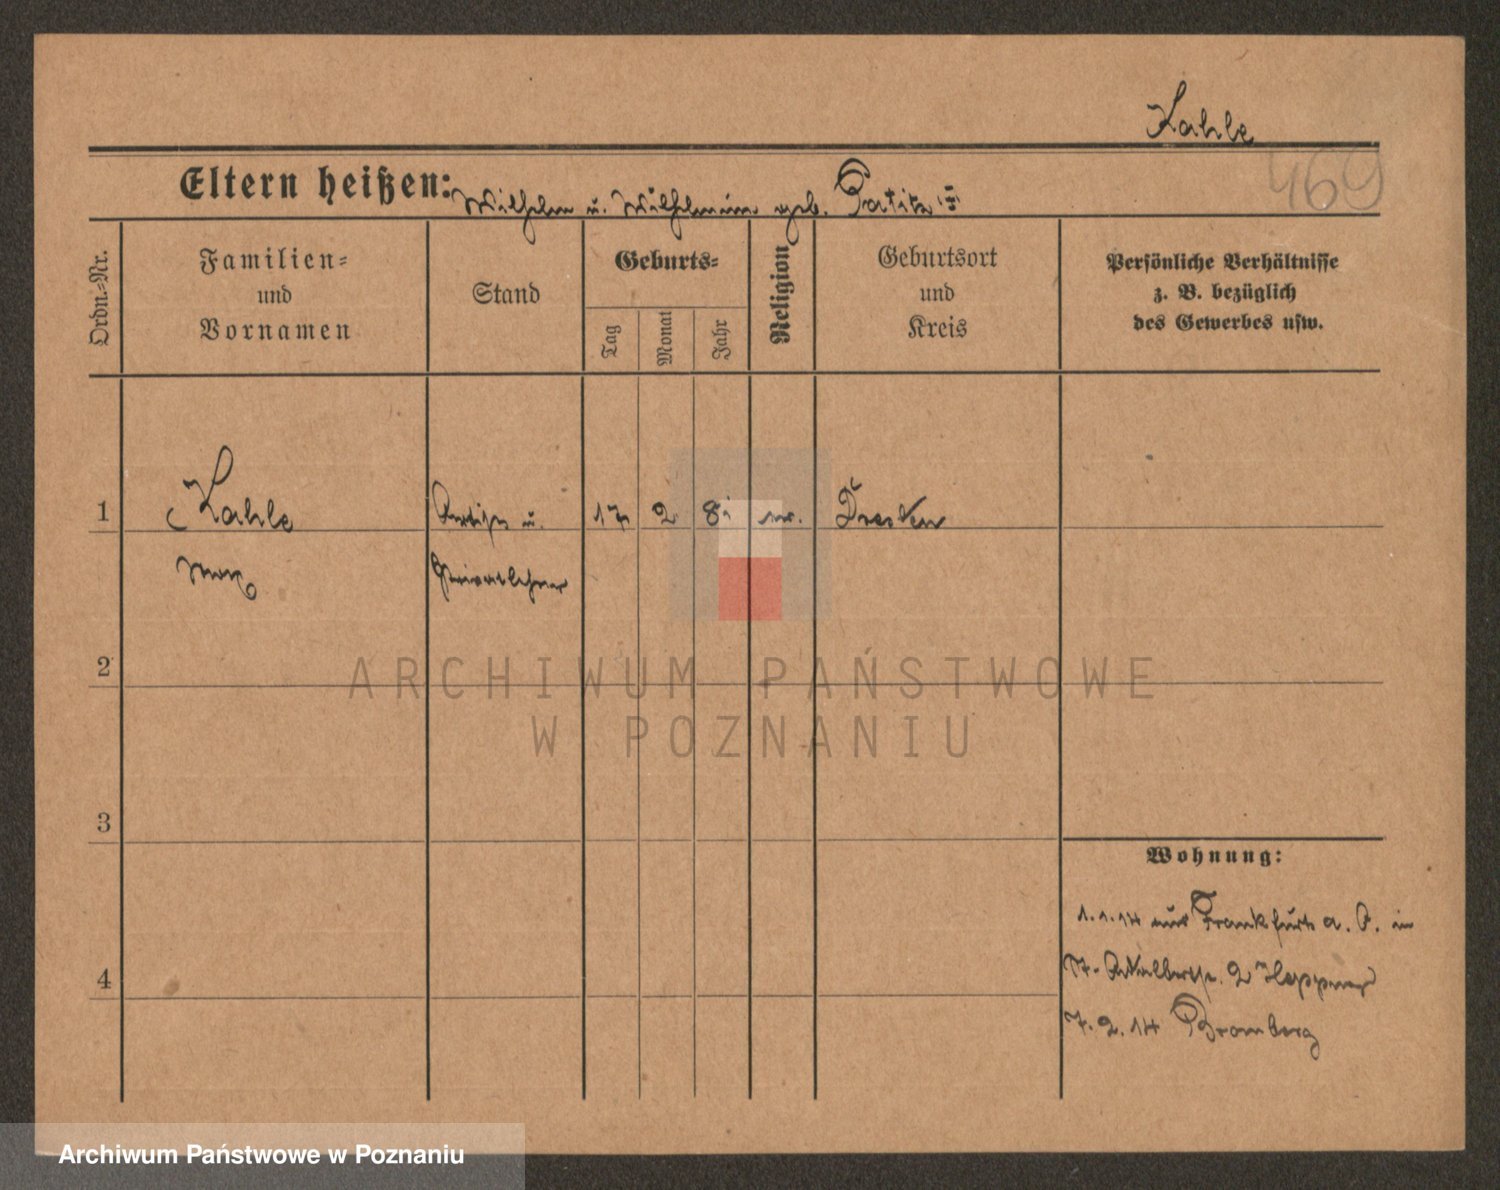 Kahle
469
Eltern heißen: Wilhelm u. Wilhelmine geb.
Ordn.=Nr.
Familien=
und
Vornamen
Stand
Geburts=
Tag
Monat
Jahr
Religion
Geburtsort
und
Kreis
Persönliche Verhältnisse
z. B. bezüglich
des Gewerbes usw.
1
Kahle
u.
17
2
8
ev.
Dresden
Max
Privatlehrer
2
ARCHIWUM PAŃSTWOWE
W POZNANIU
3
Wohnung:
1.1.14 aus Frankfurt a. O. in
4
17. Adalbertstr. 2 Heppner
7.2.14 Bromberg
Archiwum Państwowe w Poznaniu